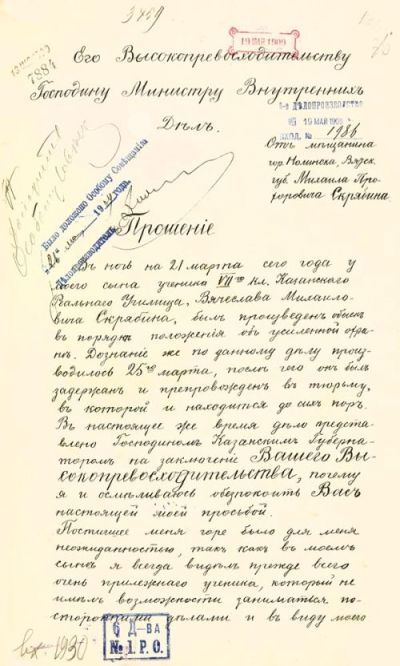 3489
19 МАЯ 1909
7884
Его Высокопревосходительству
Господину Министру Внутреннихъ
Дѣлъ.
ДѢЛОПРОИЗВОДСТВО
19 МАЯ 1909
ВХОД. № 1986
Отъ мѣщанина
гор. Нолинска, Вятск.
губ. Михаила Про-
хоровича Скрябина
Было доложено Особому Совѣщанію
Дѣлопроизводитель
Прошеніе
Въ ночь на 21 марта сего года у
моего сына ученика VII го кл. Казанскаго
Реальнаго Училища, Вячеслава Михаило-
вича Скрябина, былъ произведенъ обыскъ
въ порядкѣ положенія объ усиленной охра-
нѣ. Дознаніе же по данному дѣлу произ-
водилось 25го марта, послѣ чего онъ былъ
задержанъ и препровожденъ въ тюрьму,
въ которой и находится до сихъ поръ.
Въ настоящее же время дѣло предста-
влено Господиномъ Казанскимъ Губерна-
торомъ на заключеніе Вашего Вы-
сокопревосходительства, почему
я и осмѣливаюсь обезпокоить Васъ
настоящей моей просьбой.
Постигшее меня горе было для меня
неожиданностью, такъ какъ въ моемъ
сынѣ я всегда видѣлъ прежде всего
очень прилежнаго ученика, который не
имѣлъ возможности заниматься по-
сторонними дѣлами и въ виду моего
1930
6 Д-ВА
№ 1. Р. О.